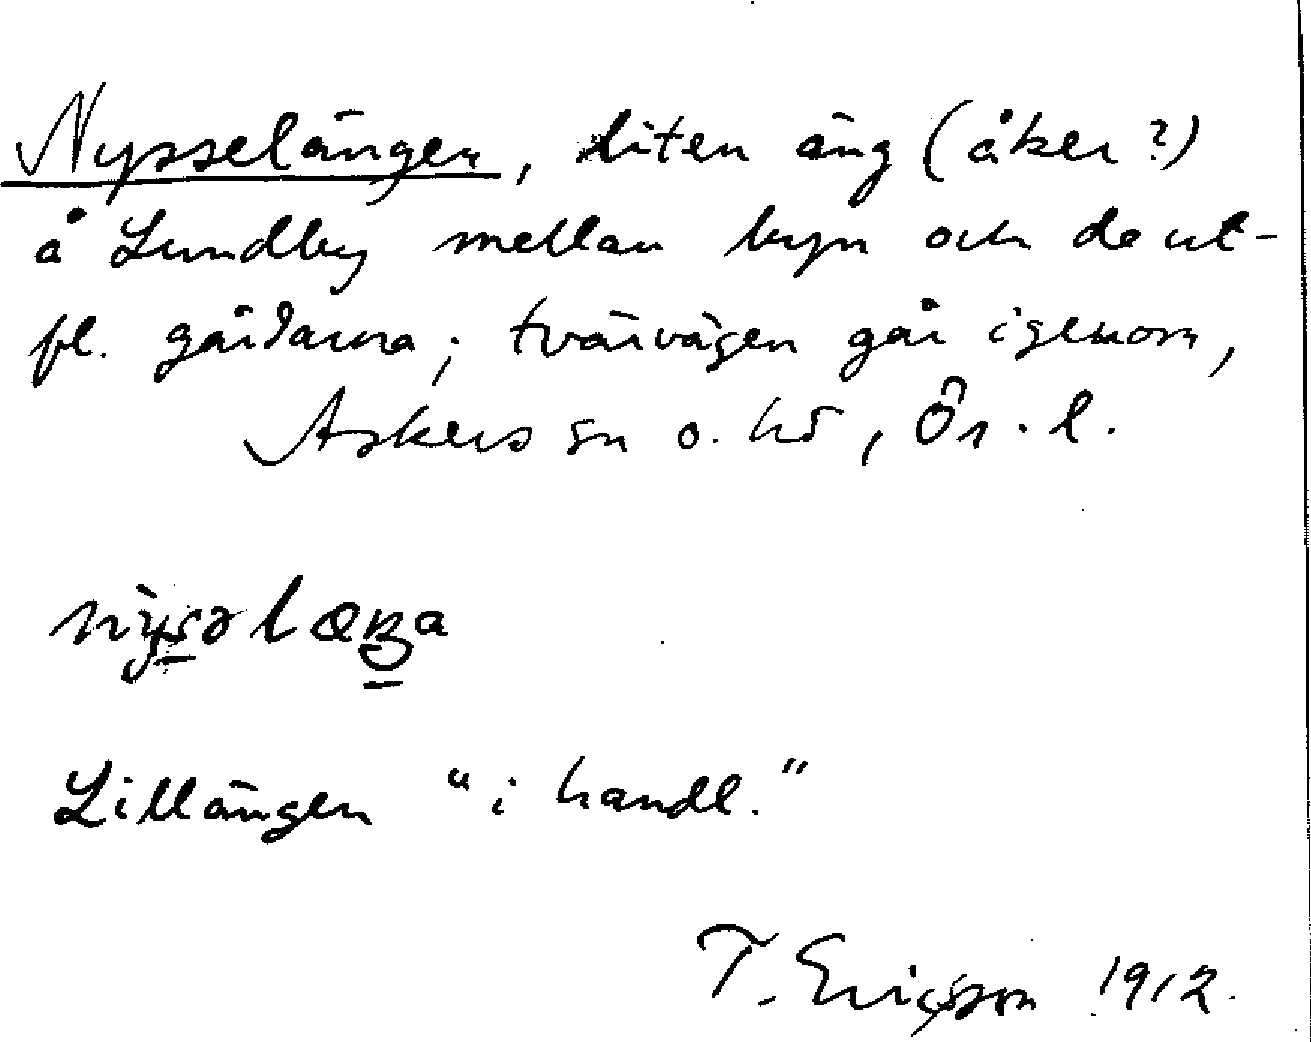 Nysselängen, liten äng (åker?)
å Lundby mellan byn och de ut-
fl. gårdarna; tvärvägen går igenom,
Askers sn o. hd, Ör. l.
Lillängen "i handl."
T. Ericsson 1912.